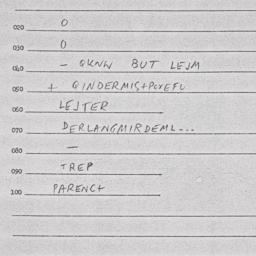 020 O
030 O
040 - QKNW BUT LEJM
050 + QINDERMIS+POYEFU
060 LEJTER
070 DERLANGMIRDEML...
080 —
090 TREP
100 PARENC+